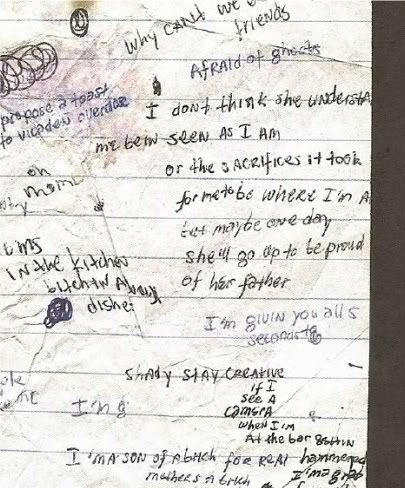 why can't we b
friends
Afraid of ghosts
propose a toast
to vicoden overdose
I don't think she understa
me bein seen as I am
or the sacrifices it took
for me to be where I'm a
but maybe one day
she'll go up to be proud
of her father
oh
moms
in the kitchen
bitchin
dishes
I'm givin you all 5
seconds to
Shady stay creative
if I
see a
camera
when I'm
at the bar gettin
hammered
I'm g
I'm a son of a bitch for real
mothers a bitch
I'm a grab